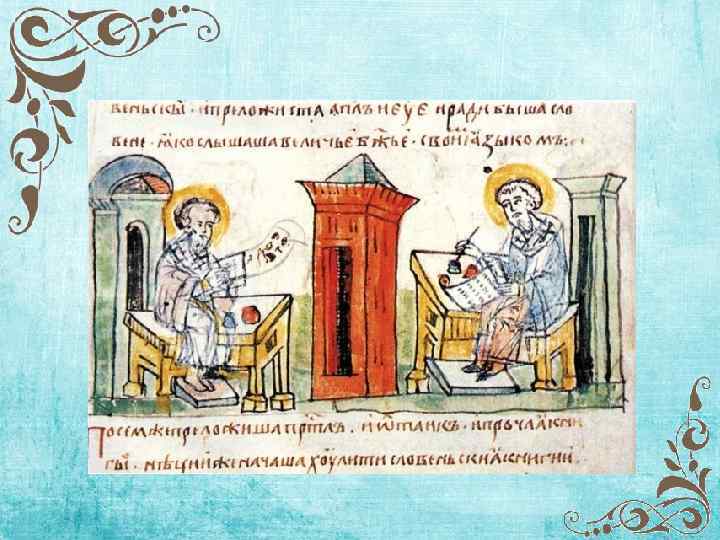 веньскы · и преложиста ап҃лъ и еу҃є и ради быша сло
вени · ꙗко слышаша величьє б҃жьє · своиⷨ ꙗзыкомъ
Посем же преложиша · и ѡктаикъ · и прочаꙗ кни
гы · нѣции же начаша хоулити словеньскиꙗ книги